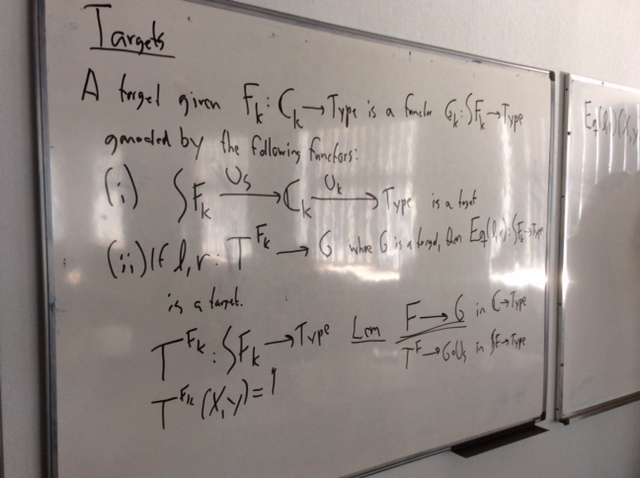 Targets
A target given F_k : C_k → Type is a functor G_k : ∫F_k → Type
generated by the following functors:
(i) ∫F_k —U_S→ C_k —U_k→ Type is a target
(ii) If l, r : T^{F_k} → G where G is a target, then Eq(l,r) : ∫F_k → Type
is a target.
T^{F_k} : ∫F_k → Type
T^{F_k}(X,y) = 1
Lem
F → G in C → Type
T^F → G∘U_S in ∫F → Type
Eq(l,r)(X,